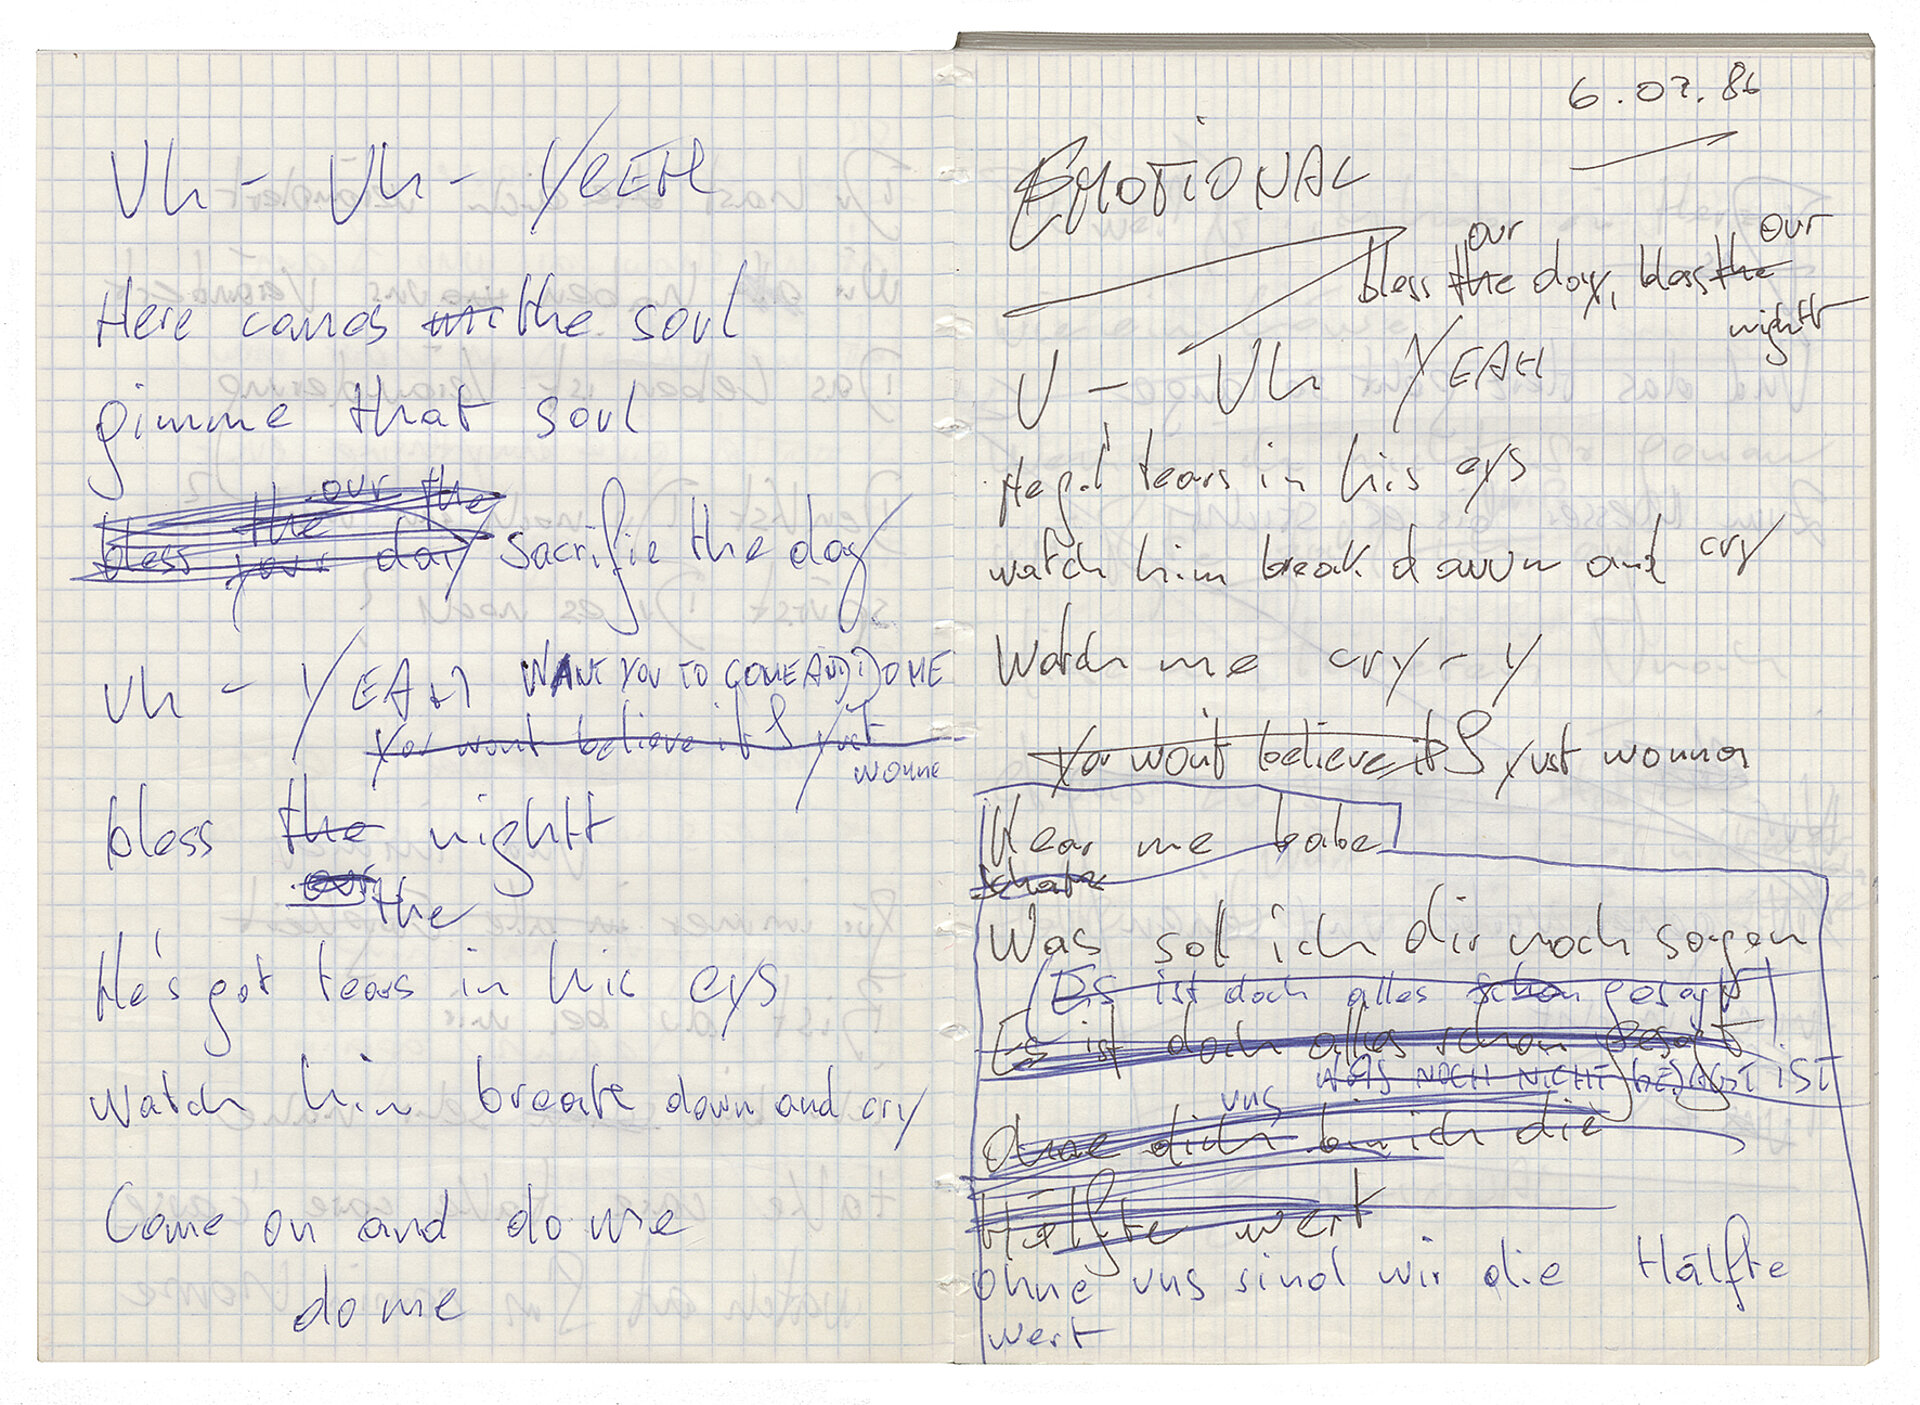 Uh - Uh - YEEH
Here comes the soul
gimme that soul
our the
the
bless your day sacrifie the day
uh - YEAH WANT YOU TO COME AND DO ME
You wont believe it I yust
wonne
bless the nightt
our the
He's got tears in his eys
watch him break down and cry
Come on and do me
do me
6.07.86
EMOTIONAL
our our
bless the day, bless the
nightt
U - Uh YEAH
tears in his eys
watch him break down and cry
Watch me cry - y
You won't believe it I yust wonna
Hear me babe
schatz
Was soll ich dir noch sagen
(Es ist doch alles schon gesagt)
Es ist doch alles schon gesagt
WAS NOCH NICHT GESAGT IST
uns
Ohne dich bin ich die
Hälfte wert
ohne uns sind wir die Hälfte
wert